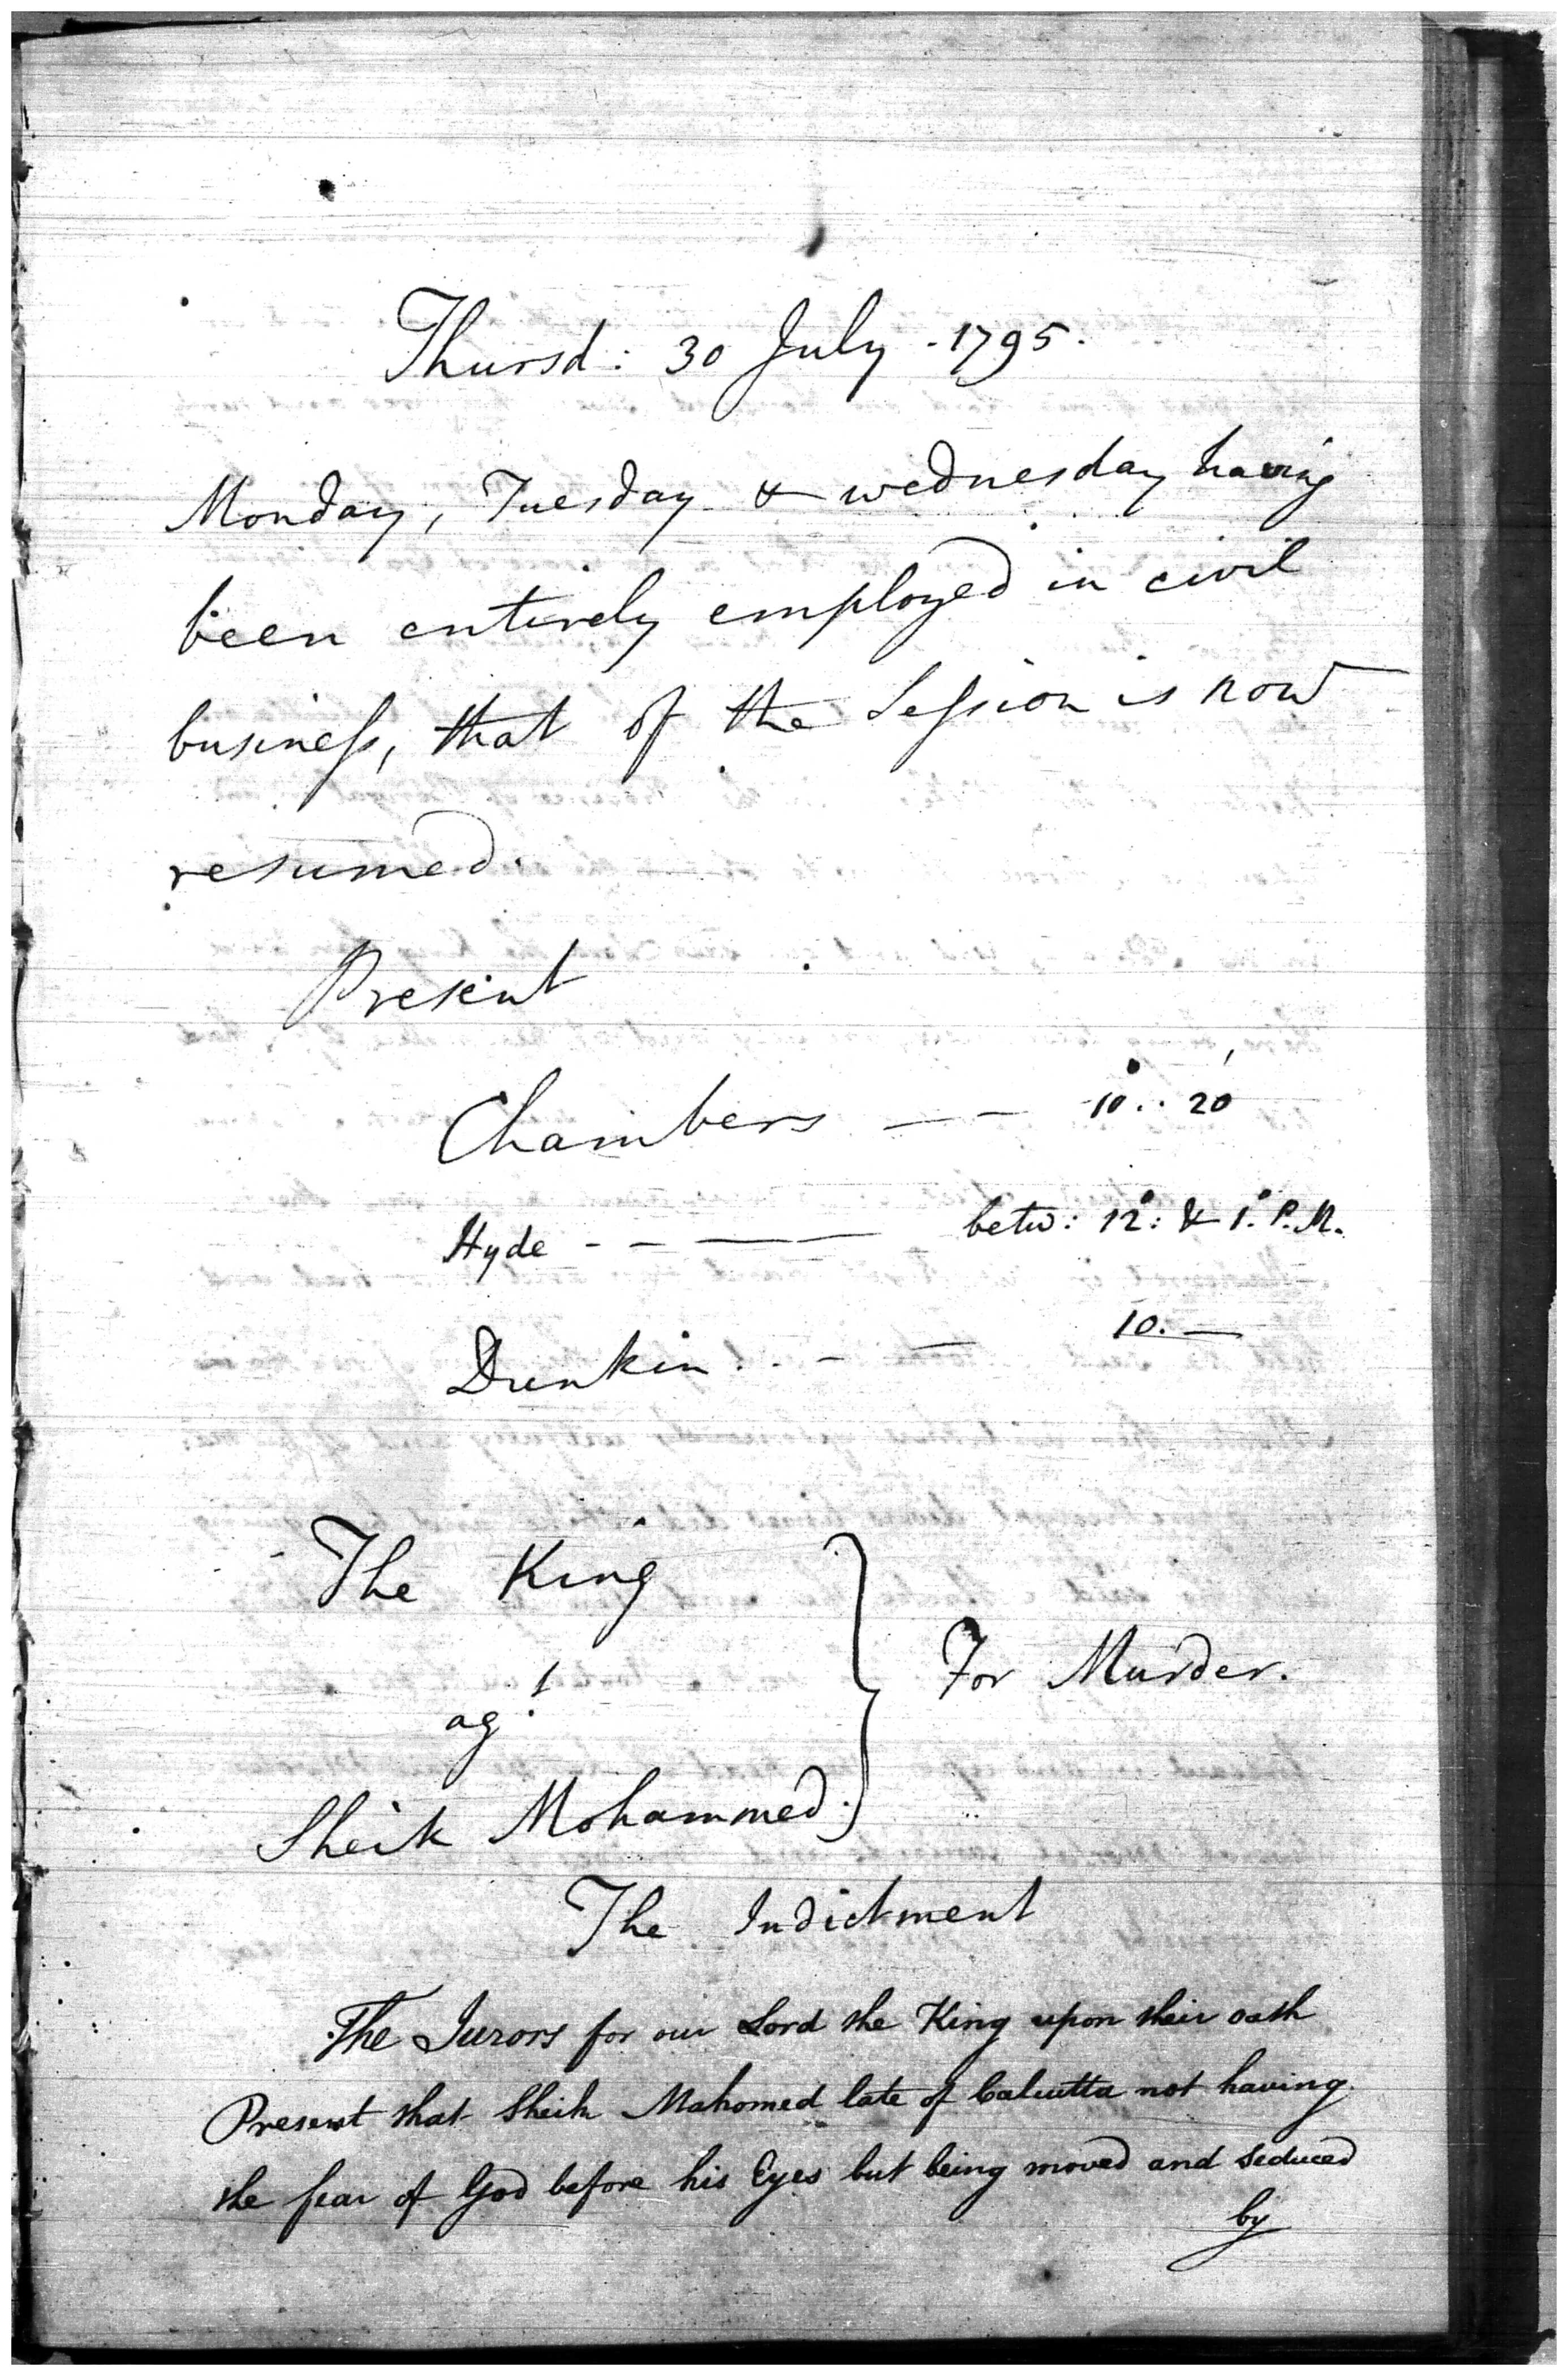 Thursd: 30 July. 1795.
Monday, Tuesday & wednesday having
been entirely employed in civil
business, that of the Session is now
resumed.
Present
Chambers — — 10°.. 20'
Hyde - - — — betw: 12°: & 1°. P.M.
Dunkin . . - — 10. —
The King
agt
For Murder.
Sheik Mohammed.
The Indictment
The Jurors for our Lord the King upon their oath
Present that Sheik Mahomed late of Calcutta not having
the fear of God before his Eyes but being moved and seduced
by